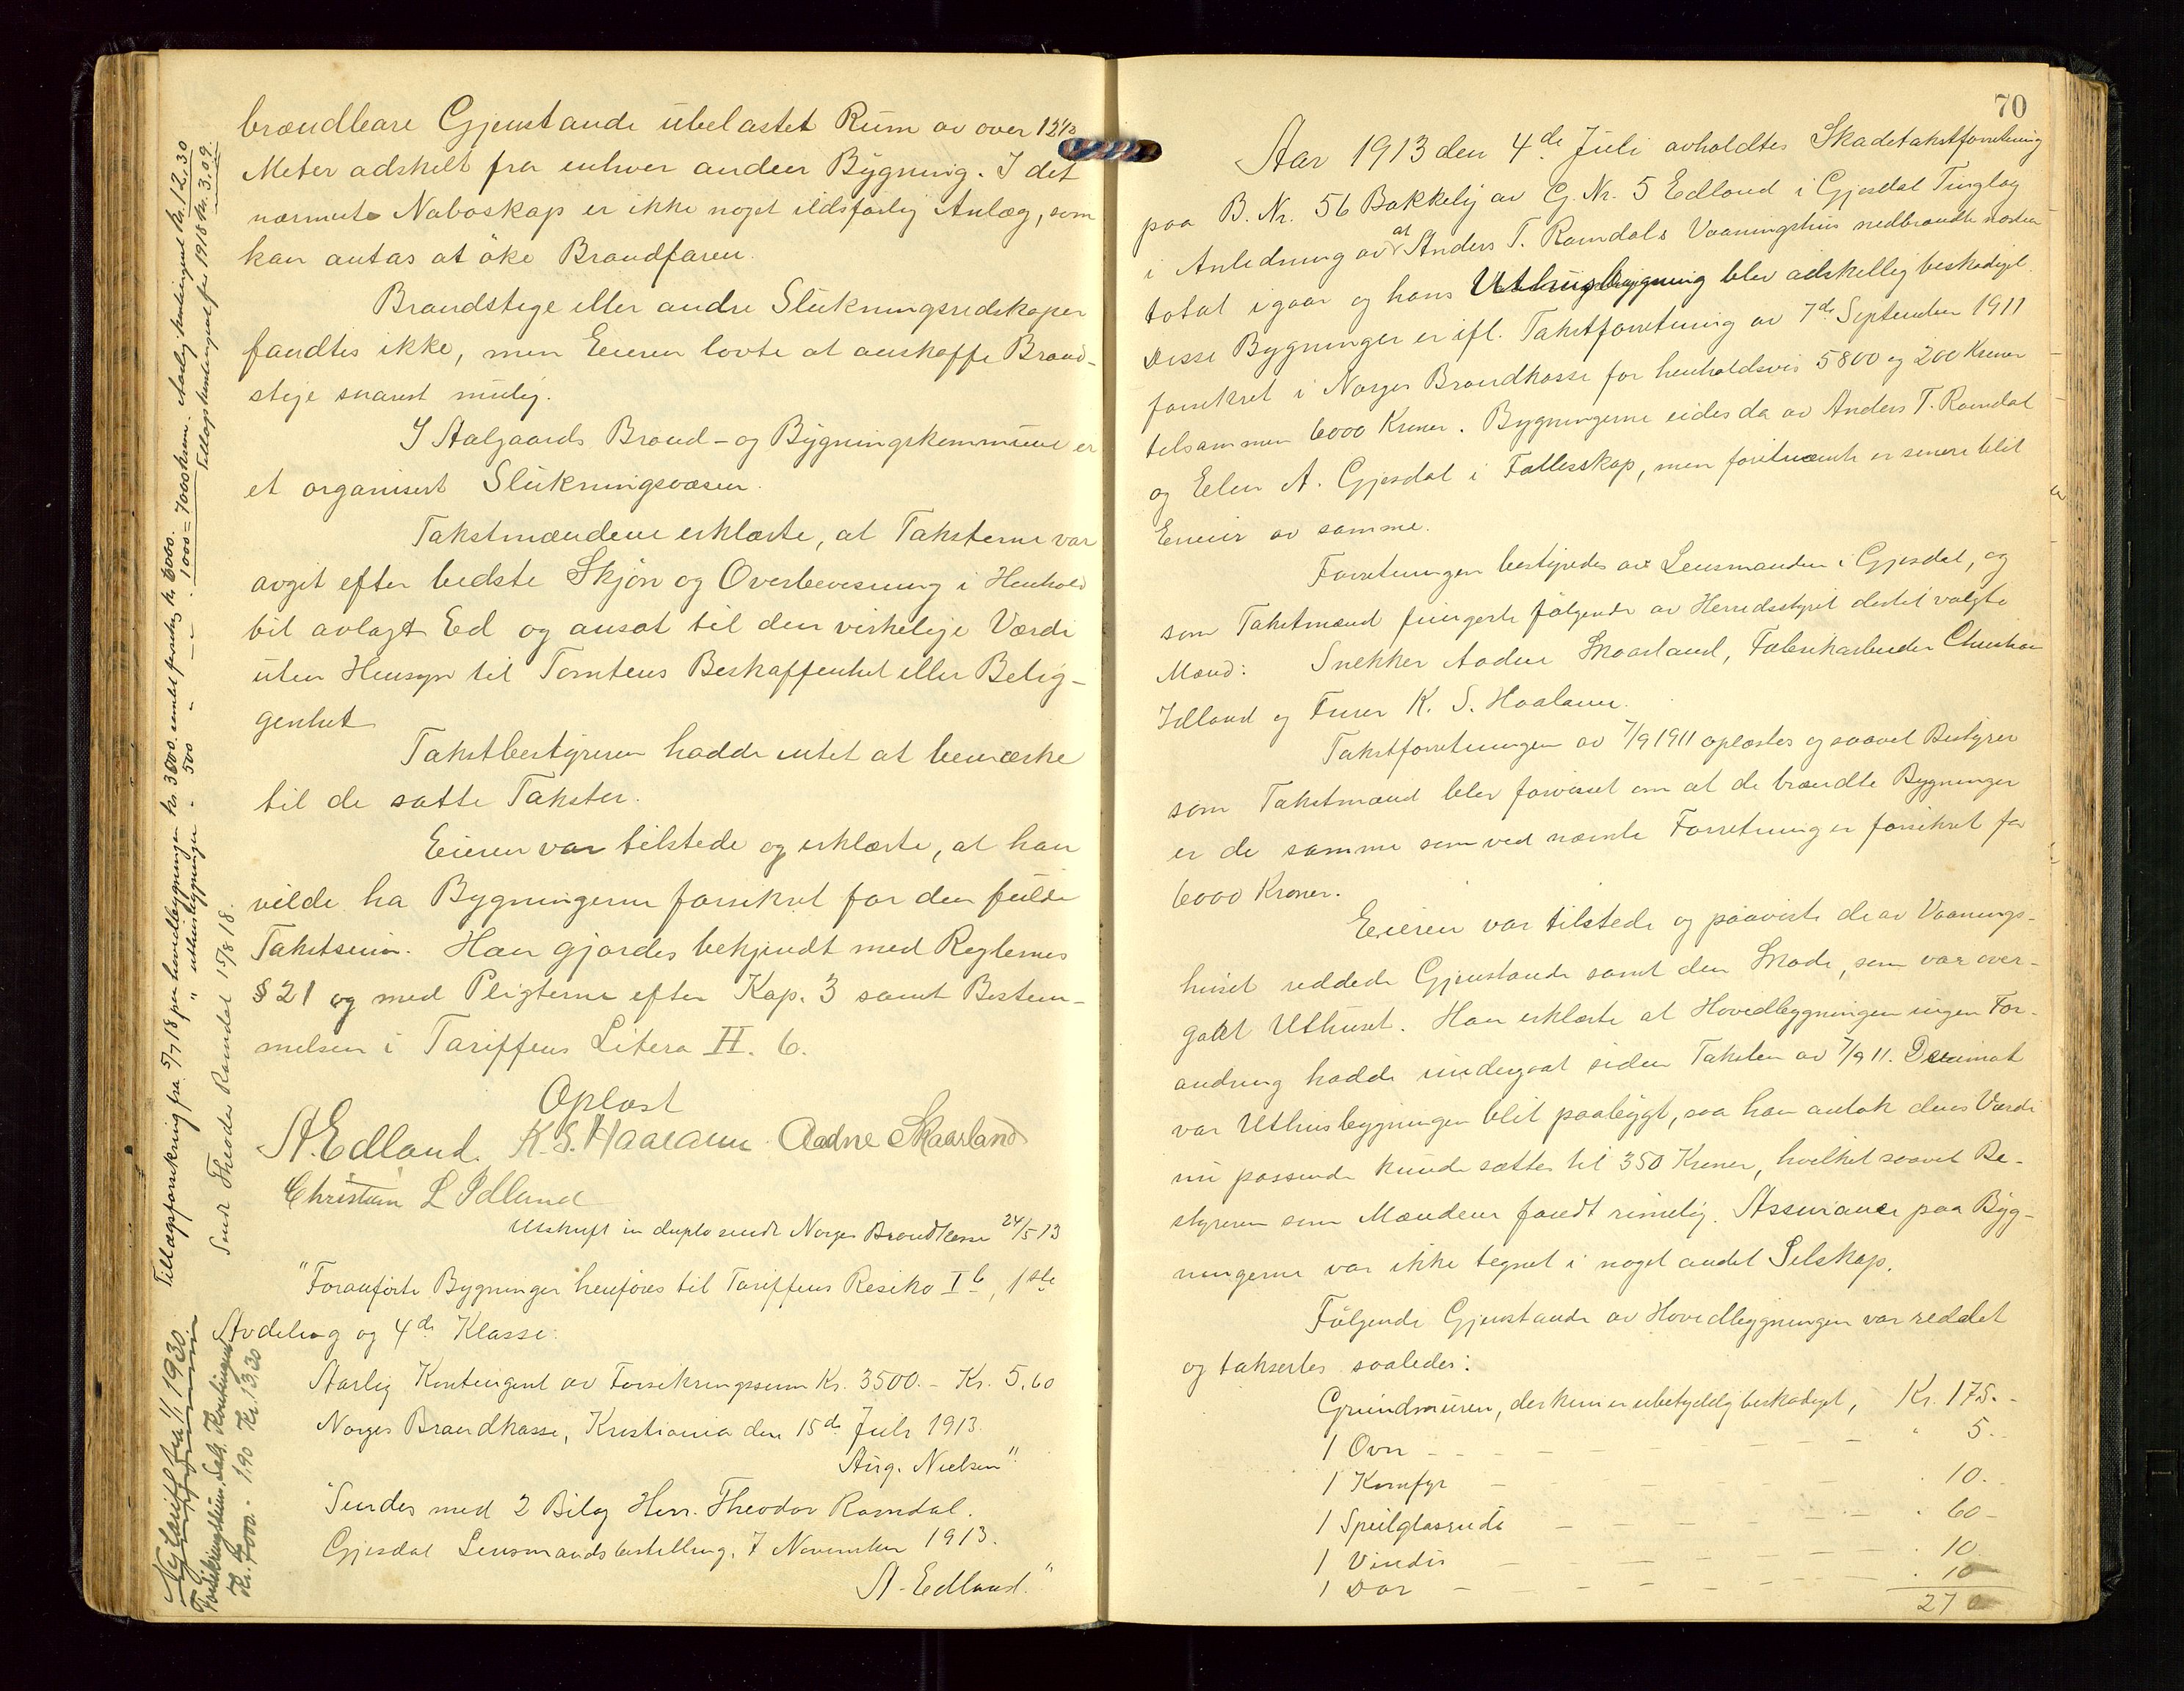 brændbare Gjenstande ubelastet Rum av over 12½
Meter adskilt fra enhver anden Bygning. I det
nærmeste Naboskap er ikke noget ildsfarlig Anlæg, som
kan antas at øke Brandfaren.
Brandstige eller andre Slukningsredskaper
fandtes ikke, men Eieren lovte at anskaffe Brand-
stige snarest mulig.
I Aalgaards Brand- og Bygningskommune er
et organisert Slukningsvæsen.
Takstmændene erklærte, at Taksterne var
avgit efter bedste Skjøn og Overbevisning i Henhold
til avlagt Ed og ansat til den virkelige Værdi
uten Hensyn til Tomtens Beskaffenhet eller Belig-
genhet
Takstbestyreren hadde intet at bemærke
til de satte Takster.
Eieren var tilstede og erklærte, at han
vilde ha Bygningerne forsikret for den fulde
Takstsum. Han gjordes bekjendt med Reglernes
§ 21 og med Pligterne efter Kap. 3 samt Bestem-
melsen i Tariffens Litera II. 6.
Oplæst
A. Edland. K. S. Haaland Aadne Skaarland
Christian L Idland
Utskrift in duplo sendt Norges Brandkasse 24/5 13
"Foranførte Bygninger henføres til Tariffens Resiko I b, 1ste
Avdeling og 4de Klasse.
Aarlig Kontingent av Forsikringssum Kr. 3500.- Kr. 5,60
Norges Brandkasse, Kristiania den 15de Juli 1913.
Aug. Nielsen"
"Sendes med 2 Bilag Herr. Theodor Ramdal.
Gjesdal Lensmandsbestilling, 7 November 1913.
A. Edland."
Tillægsforsikring fra 5/7 18 paa hovedbygningen kr. 3000. samlet forsikring kr 6000. Aarlig kontingent kr. 12,30
" uthusbygningen - 500 " - " - 1000 = 7000 kroner. Tillægskontingent for 1918 kr. 3,09.
Sendt Theodor Ramdal 15/8 18.
Ny tariff fra 1/1 1930.
Forsikringssum, Sats, Kontingent
Kr. 7000.- 1,90 Kr. 13,30
70
Aar 1913 den 4de Juli avholdtes Skadetakstforretning
paa B. Nr. 56 Bakkelig av G. Nr. 5 Edland i Gjesdal Tinglag
i Anledning av at Anders T. Ramdals Vaaningshus nedbrændte næsten
total igaar og hans Uthusbygning blev adskillig beskadiget.
Disse Bygninger er ifl. Takstforretning av 7de September 1911
forsikret i Norges Brandkasse for henholdsvis 5800 og 200 Kroner
tilsammen 6000 Kroner. Bygningerne eides da av Anders T. Ramdal
og Elen A. Gjesdal i Fællesskap, men førstnævnte er senere blit
Eneeier av samme.
Forretningen bestyredes av Lensmanden i Gjesdal, og
som Takstmænd fungerte følgende av Herredsstyret dertil valgte
Mænd: Snekker Aadne Skaarland, Fabrikarbeider Christian
Idland og Furer K. S. Haaland.
Takstforretningen av 7/9 1911 oplæstes og saavel Bestyrer
som Takstmænd blev forvisset om at de brændte Bygninger
er de samme som ved nævnte Forretning er forsikret for
6000 Kroner.
Eieren var tilstede og paaviste de av Vaanings-
huset reddede Gjenstande samt den Skade, som var over-
gaat Uthuset. Han erklærte at Hovedbygningen ingen For-
andring hadde undergaat siden Taksten av 7/9 11. Derimot
var Uthusbygningen blit paabygt, saa han antok dens Værdi
nu passende kunde sættes til 350 Kroner, hvilket saavel Be-
styreren som Mændene fandt rimelig. Assurance paa Byg-
ningerne var ikke tegnet i noget andet Selskap.
Følgende Gjenstande av Hovedbygningen var reddet
og takseres saaledes:
Grundmuren, der kun er ubetydelig beskadiget, Kr. 175.-
1 Ovn - - - - - - - " 5.-
1 Komfyr - - - - - - " 10.-
1 Speilglasrude - - - - - - " 60-
1 Vindu - - - - - - - " 10
1 Dør - - - - - - - " 10
270